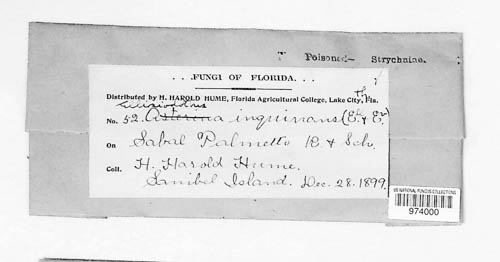 Poisoned— Strychnine.
. . . FUNGI OF FLORIDA. . . .
Distributed by H. HAROLD HUME, Florida Agricultural College, Lake City, Fla.
No. 52. Asterina inquinans (E. & E.)
On Sabal Palmetto R & Sch.
Coll. H. Harold Hume.
Sanibel Island. Dec. 28. 1899.
US NATIONAL FUNGUS COLLECTIONS
974000